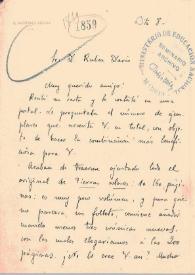 G. MARTÍNEZ SIERRA
1859
Dbre 8.
MINISTERIO DE EDUCACION NACIONAL
SEMINARIO
ARCHIVO
Sr. D. Rubén Darío
Muy querido amigo:
Recibí su carta y la contesté en una
postal. Le preguntaba el número de ejem-
plares que necesita V. en total, con obje-
to de hacer la combinación más benefi-
ciosa para V.
Acaban de traerme ajustado todo el
original de Tierras solares: da 160 pági-
nas; es muy poco volumen, y para que
no parezca un folleto, conviene añadir
cuando menos tres crónicas
con las cuales llegaríamos a las 200
páginas. ¿No le cree V. así? Mucho